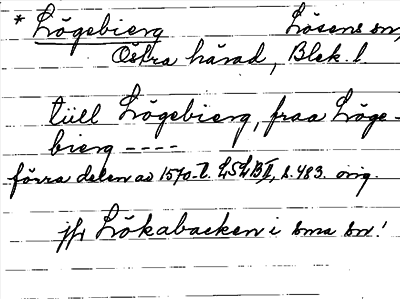 * Lögebierg Lösens sn,
Östra härad, Blek. l.
tiill Lögebierg, fraa Löge-
bierg ----
förra delen av 1570-t. LSLB II, s. 483. orig.
jfr Lökabacken i sma sn!